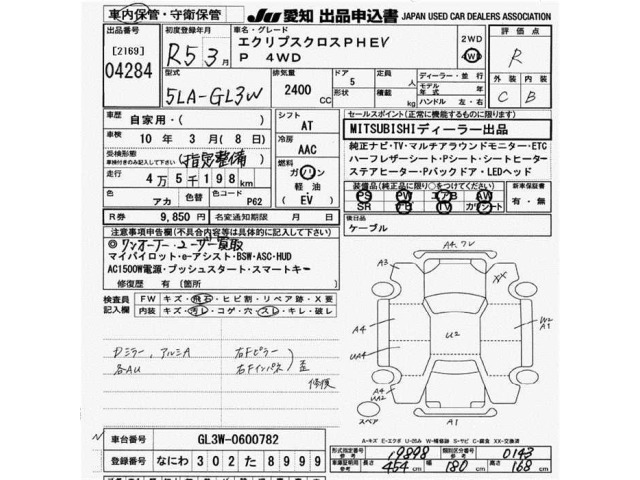 車内保管・守衛保管
JU 愛知 出品申込書 JAPAN USED CAR DEALERS ASSOCIATION
出品番号
[2169]
04284
初度登録年月
R5 3月
車名・グレード
エクリプスクロスPHEV
P 4WD
2WD
4WD
評価点
R
型式
5LA-GL3W
排気量
2400 CC
ドア
5
形状
定員 人
積載 kg
ディーラー・並行
モデル年式 年
ハンドル 左・右
外装 内装
C B
車歴
自家用・( )
車検
10年 3月 (8日)
受検形態
車検付きのみ記入して下さい
(指定整備)
走行
4万5千198km
色 アカ
色替
色コード P62
R券 9,850円
名変通知期限 月 日
シフト
AT
冷房
AAC
燃料
ガソリン
軽油
(EV)
セールスポイント(正常に機能するものに限ります)
MITSUBISHIディーラー出品
純正ナビ・TV・マルチアラウンドモニター・ETC
ハーフレザーシート・Pシート・シートヒーター
ステアヒーター・Pバックドア・LEDヘッド
装備品(純正品に限り○をつけてください)
PS PW エアB AW
SR ナビ TV カワシート
新車保証書
有・無
後日品
ケーブル
注意事項申告欄(不具合内容等は具体的に記入して下さい)
◎ワンオーナー・ユーザー買取
マイパイロット・e-アシスト・BSW・ASC・HUD
AC1500W電源・プッシュスタート・スマートキー
修復歴 有 (箇所)
検査員記入欄
FW キズ・飛石・ヒビ割・リペア跡・X要
内装 キズ・汚レ・コゲ・穴・スレ・キレ・破レ
Dミラー、アルミA
各AU
右Fピラー
右Fインパネ
歪
修復
A4.ワレ
A3
XX
A4
UA4
U2
W2
A1
A4
UA2
スペア
A1
A-キズ E-エクボ U-凹み W-補修跡 S-サビ C-腐食 XX-交換済
車台番号 GL3W-0600782
登録番号 なにわ 302 た 8999
形式指定番号 参考 19898
類別区分番号 参考 0143
車庫証明用参考 長さ 454 cm 幅 180 cm 高さ 168 cm